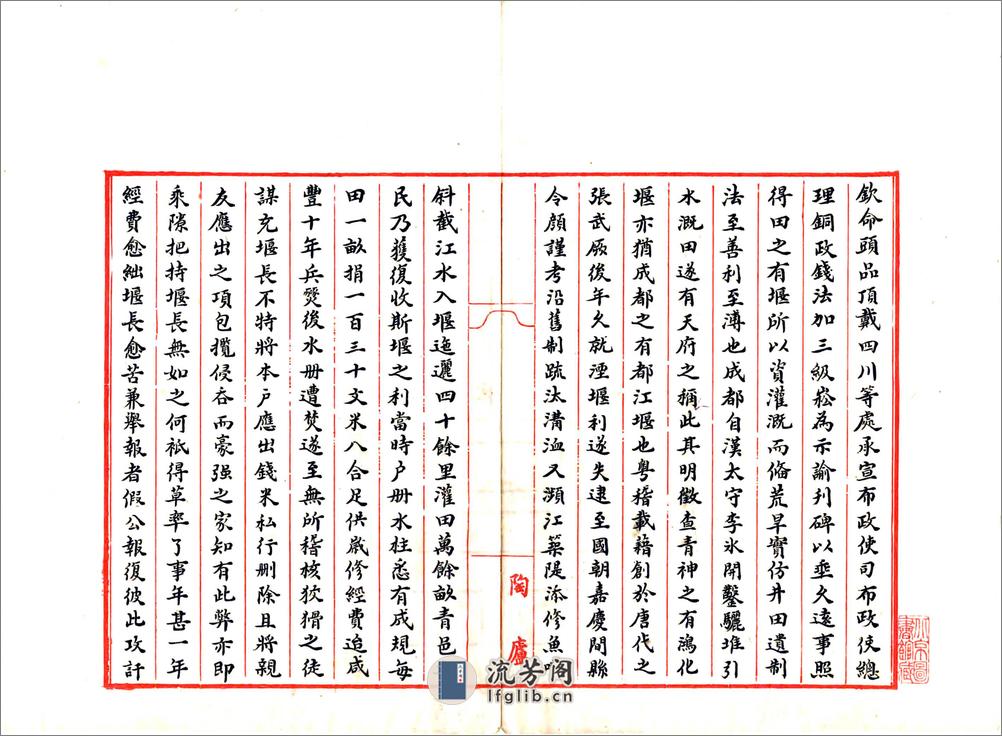 欽命頭品頂戴四川等處承宣布政使司布政使總
理銅政錢法加三級崧為示諭刋碑以垂久遠事照
得田之有堰所以資灌溉而俻荒旱實仿井田遺制
法至善利至溥也成都自漢太守李氷開鑿驪堆引
水溉田遂有天府之稱此其明徵查青神之有鴻化
堰亦猶成都之有都江堰也粵稽載藉創於唐代之
張武厥後年久就湮堰利遂失逮至國朝嘉慶間縣
令顔謹考沿舊制疏汰溝洫又瀕江築隄添修魚
斜截江水入堰迤邐四十餘里灌田萬餘畝青邑
民乃獲復收斯堰之利當時户册水柱悉有成規每
田一畝捐一百三十文米八合足供嵗修經費追咸
豐十年兵燹後水册遭焚遂至無所稽核狡猾之徒
謀充堰長不特將本戶應出錢米私行刪除且將親
友應出之項包攬侵吞而豪强之家知有此弊亦即
乘隙把持堰長無如之何祇得草率了事年甚一年
經費愈絀堰長愈苦兼舉報者假公報復彼此攻訐
陶廬
流芳阁
lfglib.cn